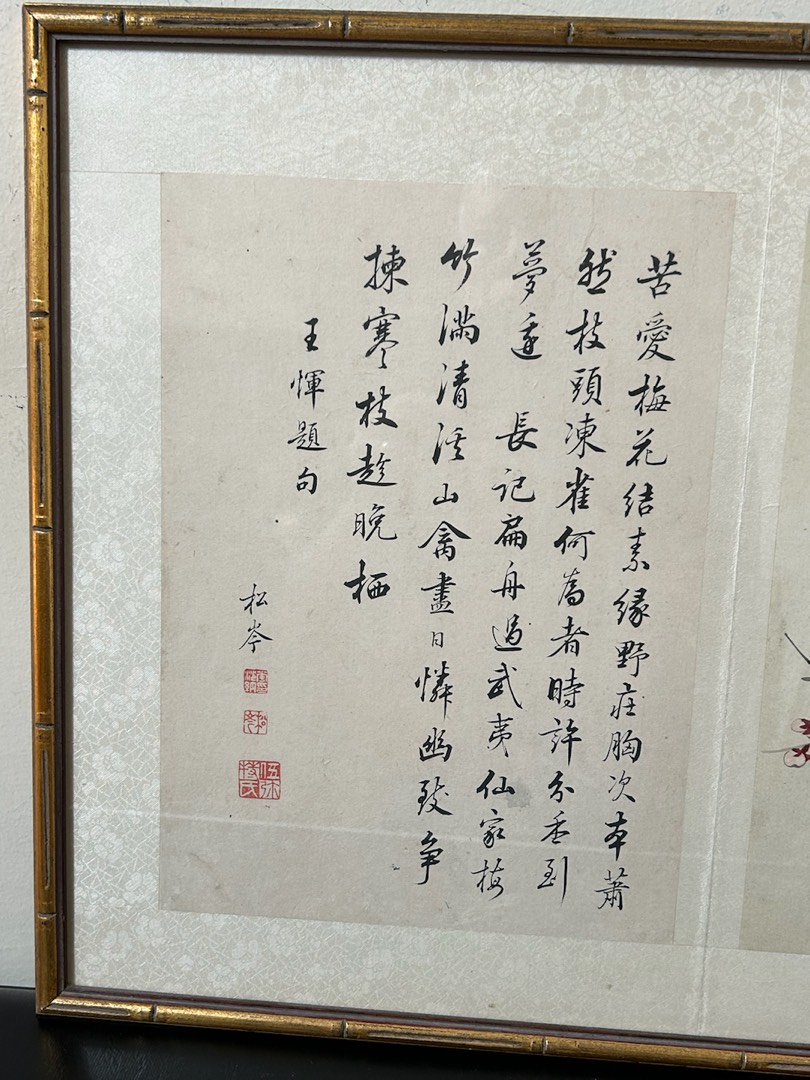 苦愛梅花結素緣野莊胸次本蕭
然枝頭凍雀何為者時許分香到
夢邊 長記扁舟過武夷仙家梅
竹滿清溪山禽盡日憐幽致爭
揀寒枝趁晚栖
王惲題句
松岑
伍弥特氏